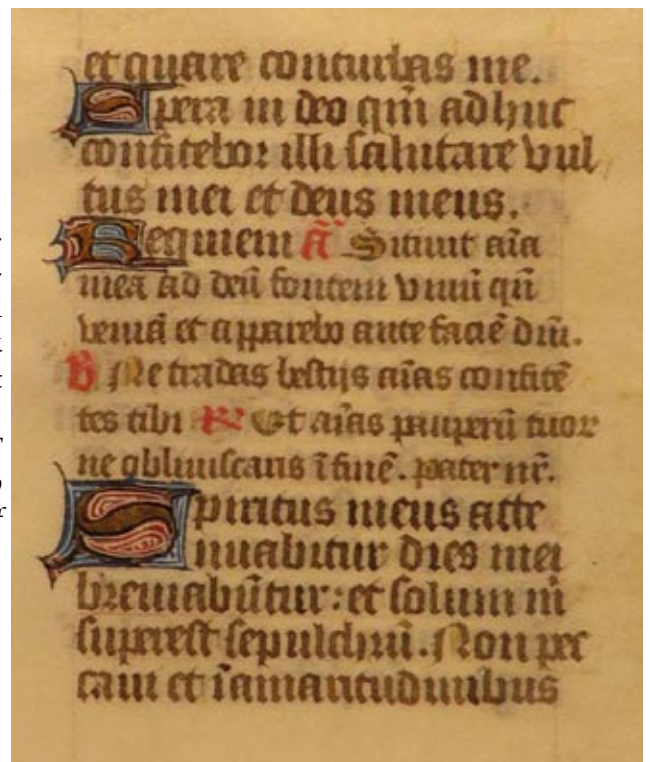 et quare conturbas me.
Spera in deo qm̄ adhuc
confitebor illi salutare vul
tus mei et deus meus.
Requiem ā Sitivit aīa
mea ad deū fontem vivū qn̄
veniā et apparebo ante faciē dn̄i.
Ne tradas bestijs aīas confitē
tes tibi Et aīas pauperū tuor
ne obliviscaris ī finē. pater nr̄.
Spiritus meus atte
nuabitur dies mei
breviabūtur: et solum m̄
superest sepulchrū. Non pec
cavi et ī amaritudinibus